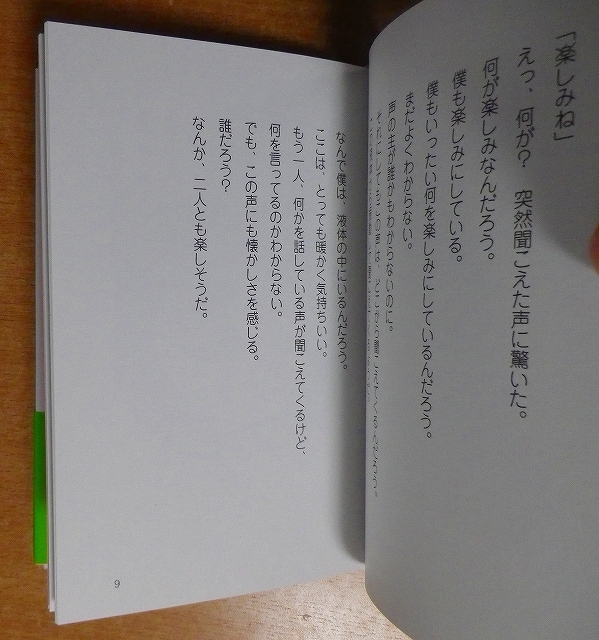 「楽しみね」
えっ、何が？　突然聞こえた声に驚いた。
何が楽しみなんだろう。
僕も楽しみにしている。
僕もいったい何を楽しみにしているんだろう。
まだよくわからない。
声の主が誰かもわからないのに。
なんで僕は、液体の中にいるんだろう。
ここは、とっても暖かく気持ちいい。
もう一人、何かを話している声が聞こえてくるけど、
何を言ってるのかわからない。
でも、この声にも懐かしさを感じる。
誰だろう？
なんか、二人とも楽しそうだ。
9